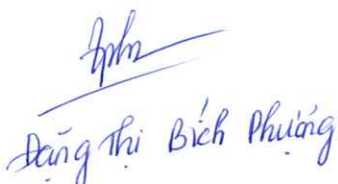 Đặng Thị Bích Phượng